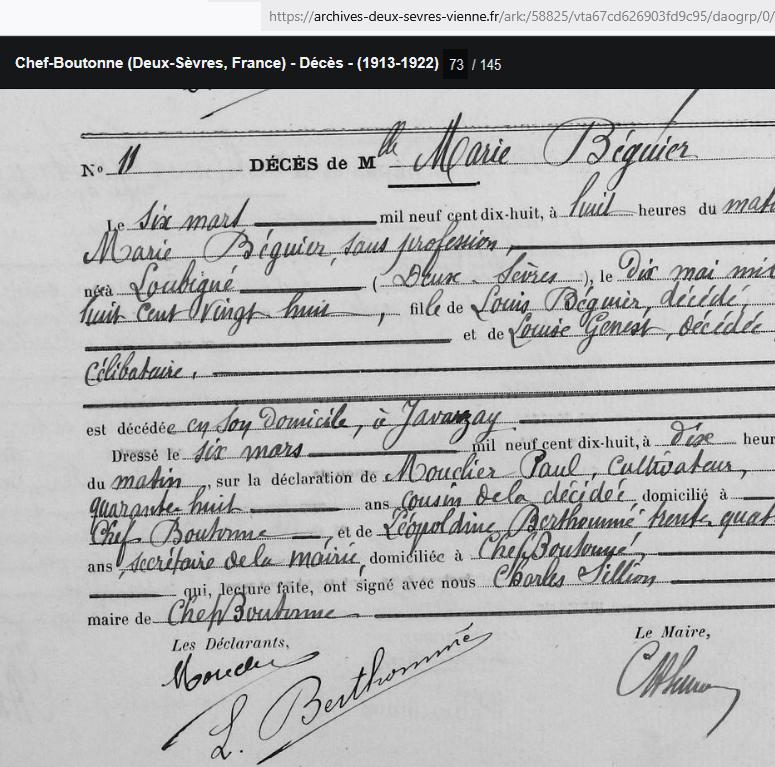 https://archives-deux-sevres-vienne.fr/ark:/58825/vta67cd626903fd9c95/daogrp/0/
Chef-Boutonne (Deux-Sèvres, France) - Décès - (1913-1922) 73 / 145
N° 11 DÉCÈS de Mlle Marie Béguier
Le six mars mil neuf cent dix-huit, à huit heures du mati
Marie Béguier, sans profession,
née à Loubigné (Deux-Sèvres), le Dix mai mil
huit cent vingt huit, fille de Louis Béguier, décédé,
et de Louise Genest, décédée
Célibataire,
est décédée en son domicile, à Javarzay
Dressé le six mars mil neuf cent dix-huit, à dix heur
du matin, sur la déclaration de Mouclier Paul, Cultivateur,
quarante huit ans cousin de la décédée domicilié à
Chef Boutonne, et de Léopoldine Berthommé trente quat
ans, secrétaire de la mairie, domiciliée à Chef Boutonne,
qui, lecture faite, ont signé avec nous Charles
maire de Chef Boutonne
Les Déclarants, Le Maire,
L. Berthommé